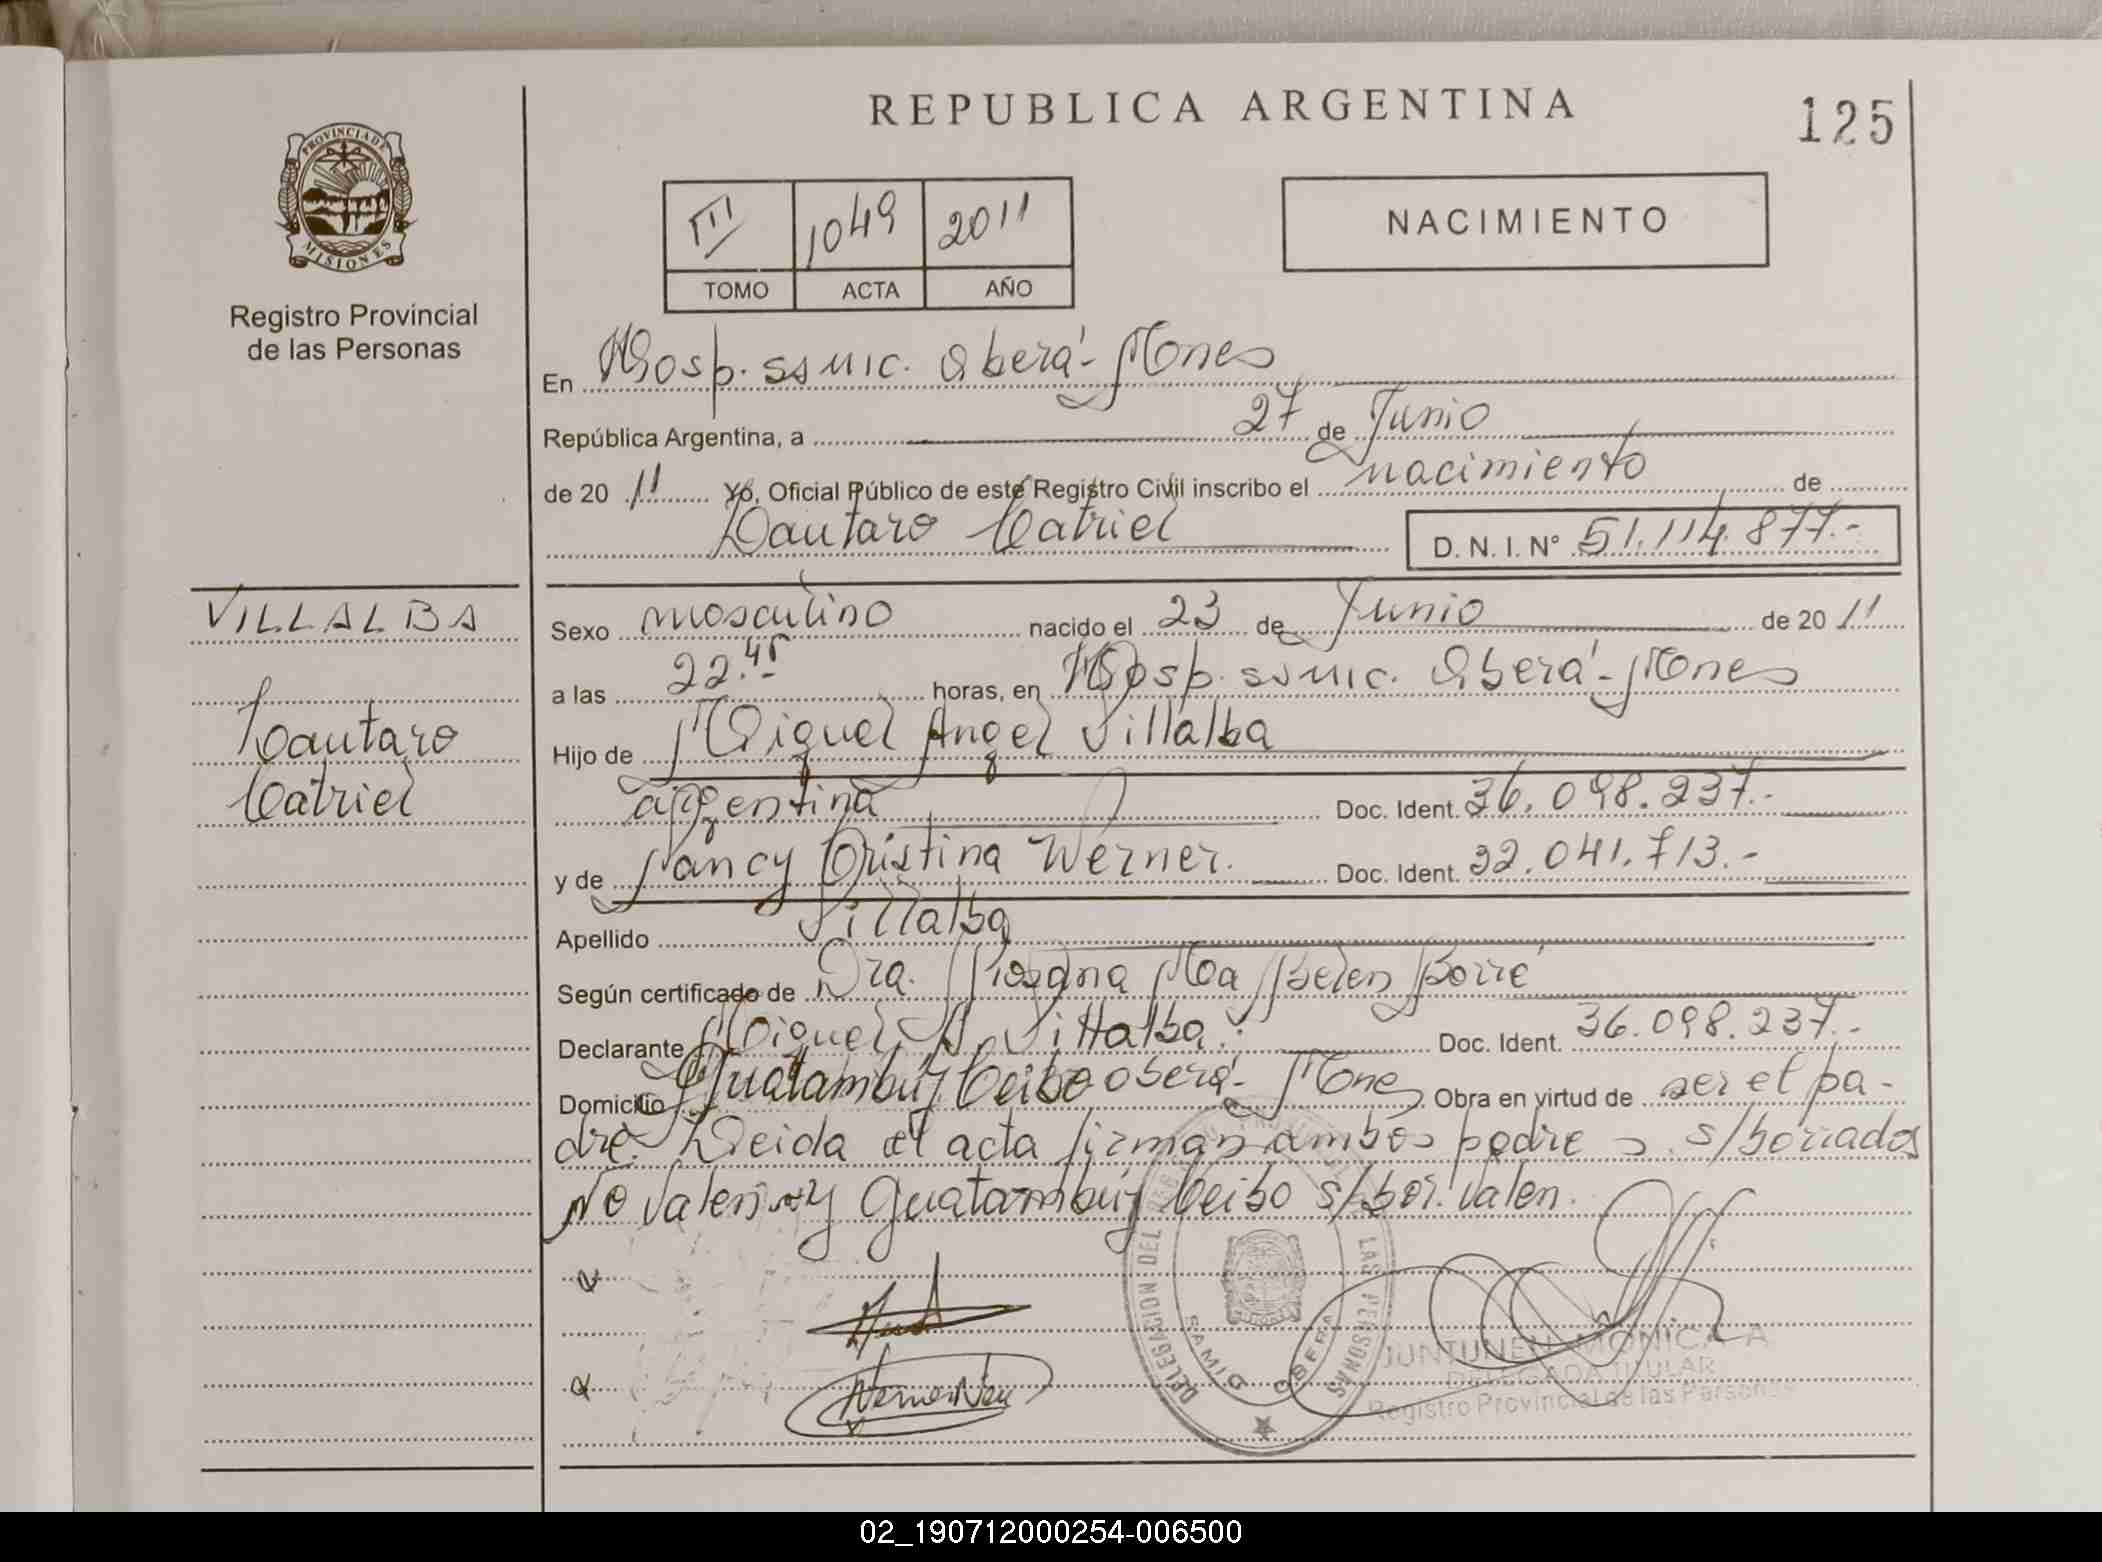 REPUBLICA ARGENTINA
125
PROVINCIA DE
MISIONES
Registro Provincial
de las Personas
III 1049 2011
TOMO ACTA AÑO
NACIMIENTO
En Hosp. SSMIC. Oberá - Mnes
República Argentina, a 27 de Junio
de 20 11 Yo, Oficial Público de este Registro Civil inscribo el nacimiento de
Lautaro Catriel D. N. I. N° 51.114.877.-
VILLALBA
Lautaro
Catriel
Sexo masculino nacido el 23 de Junio de 20 11
a las 22.45 horas, en Hosp. SSMIC. Oberá - Mnes
Hijo de Miguel Angel Villalba
argentina Doc. Ident. 36.098.237.-
y de Nancy Cristina Werner. Doc. Ident. 32.041.713.-
Apellido Villalba
Según certificado de Dra. Rosana Ma Belen Borré
Declarante Miguel A. Villalba. Doc. Ident. 36.098.237.-
Domicilio Guatambú y Ceibo Oberá - Mnes Obra en virtud de ser el pa-
dre. Leida el acta firman ambos padres s/borrados
No valen y Guatambú y Ceibo s/bor. valen.
DELEGACION DEL LAS PERSONAS
OBERA
JUNTUNEN MONICA A
DELEGADA TITULAR
Registro Provincial de las Personas
02_190712000254-006500